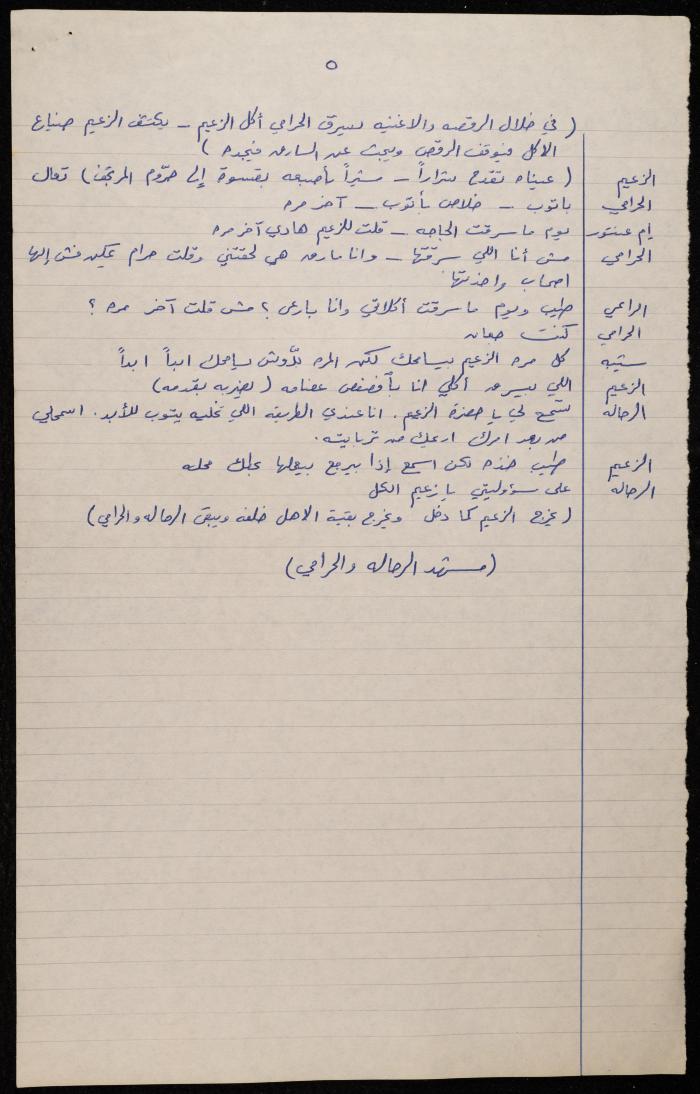 ٥
( في خلال الرقصه والاغنيه يسرق الحرامي أكل الزعيم – يكتشف الزعيم ضياع
الاكل فيوقف الرقص ويبحث عن السارق فيجده )
الزعيم ( عيناه تقدح شراراً – مشيراً بأصبعه بقسوة إلى المرتجف ) تعال
الحرامي باتوب – خلاص بأتوب – آخر مره
إم عنتور يوم ما سرقت الحاجه – قلت للزعيم هادي آخر مره
الحرامي مش أنا اللي سرقتها – وانا مارق هي لحقتني وقلت حرام يمكن فش إلها
اصحاب واخذتها
الراعي طيب ويوم ما سرقت أكلاتي وانا بارعى ؟ مش قلت آخر مره ؟
الحرامي كنت جعان
ستيته كل مره الزعيم بيسامحك لكن المره بدّوش يسامحك ابداً ابداً
الزعيم اللي بيسرق أكلي انا بأفصفص عضامه ( يضربه بقدمه )
الرحاله تسمح لي يا حضرة الزعيم . انا عندي الطريقه اللي تخليه يتوب للأبد . اسمحلي
من بعد امرك اريحك من تربايته .
الزعيم طيب خذه لكن اسمع إذا بيرجع بيعملها بحطك محله
الرحاله على مسؤوليتي يا زعيم الكل
( يخرج الزعيم كما دخل ويخرج بقية الاهل خلفه ويبقى الرحاله والحرامي )
( مشهد الرحاله والحرامي )